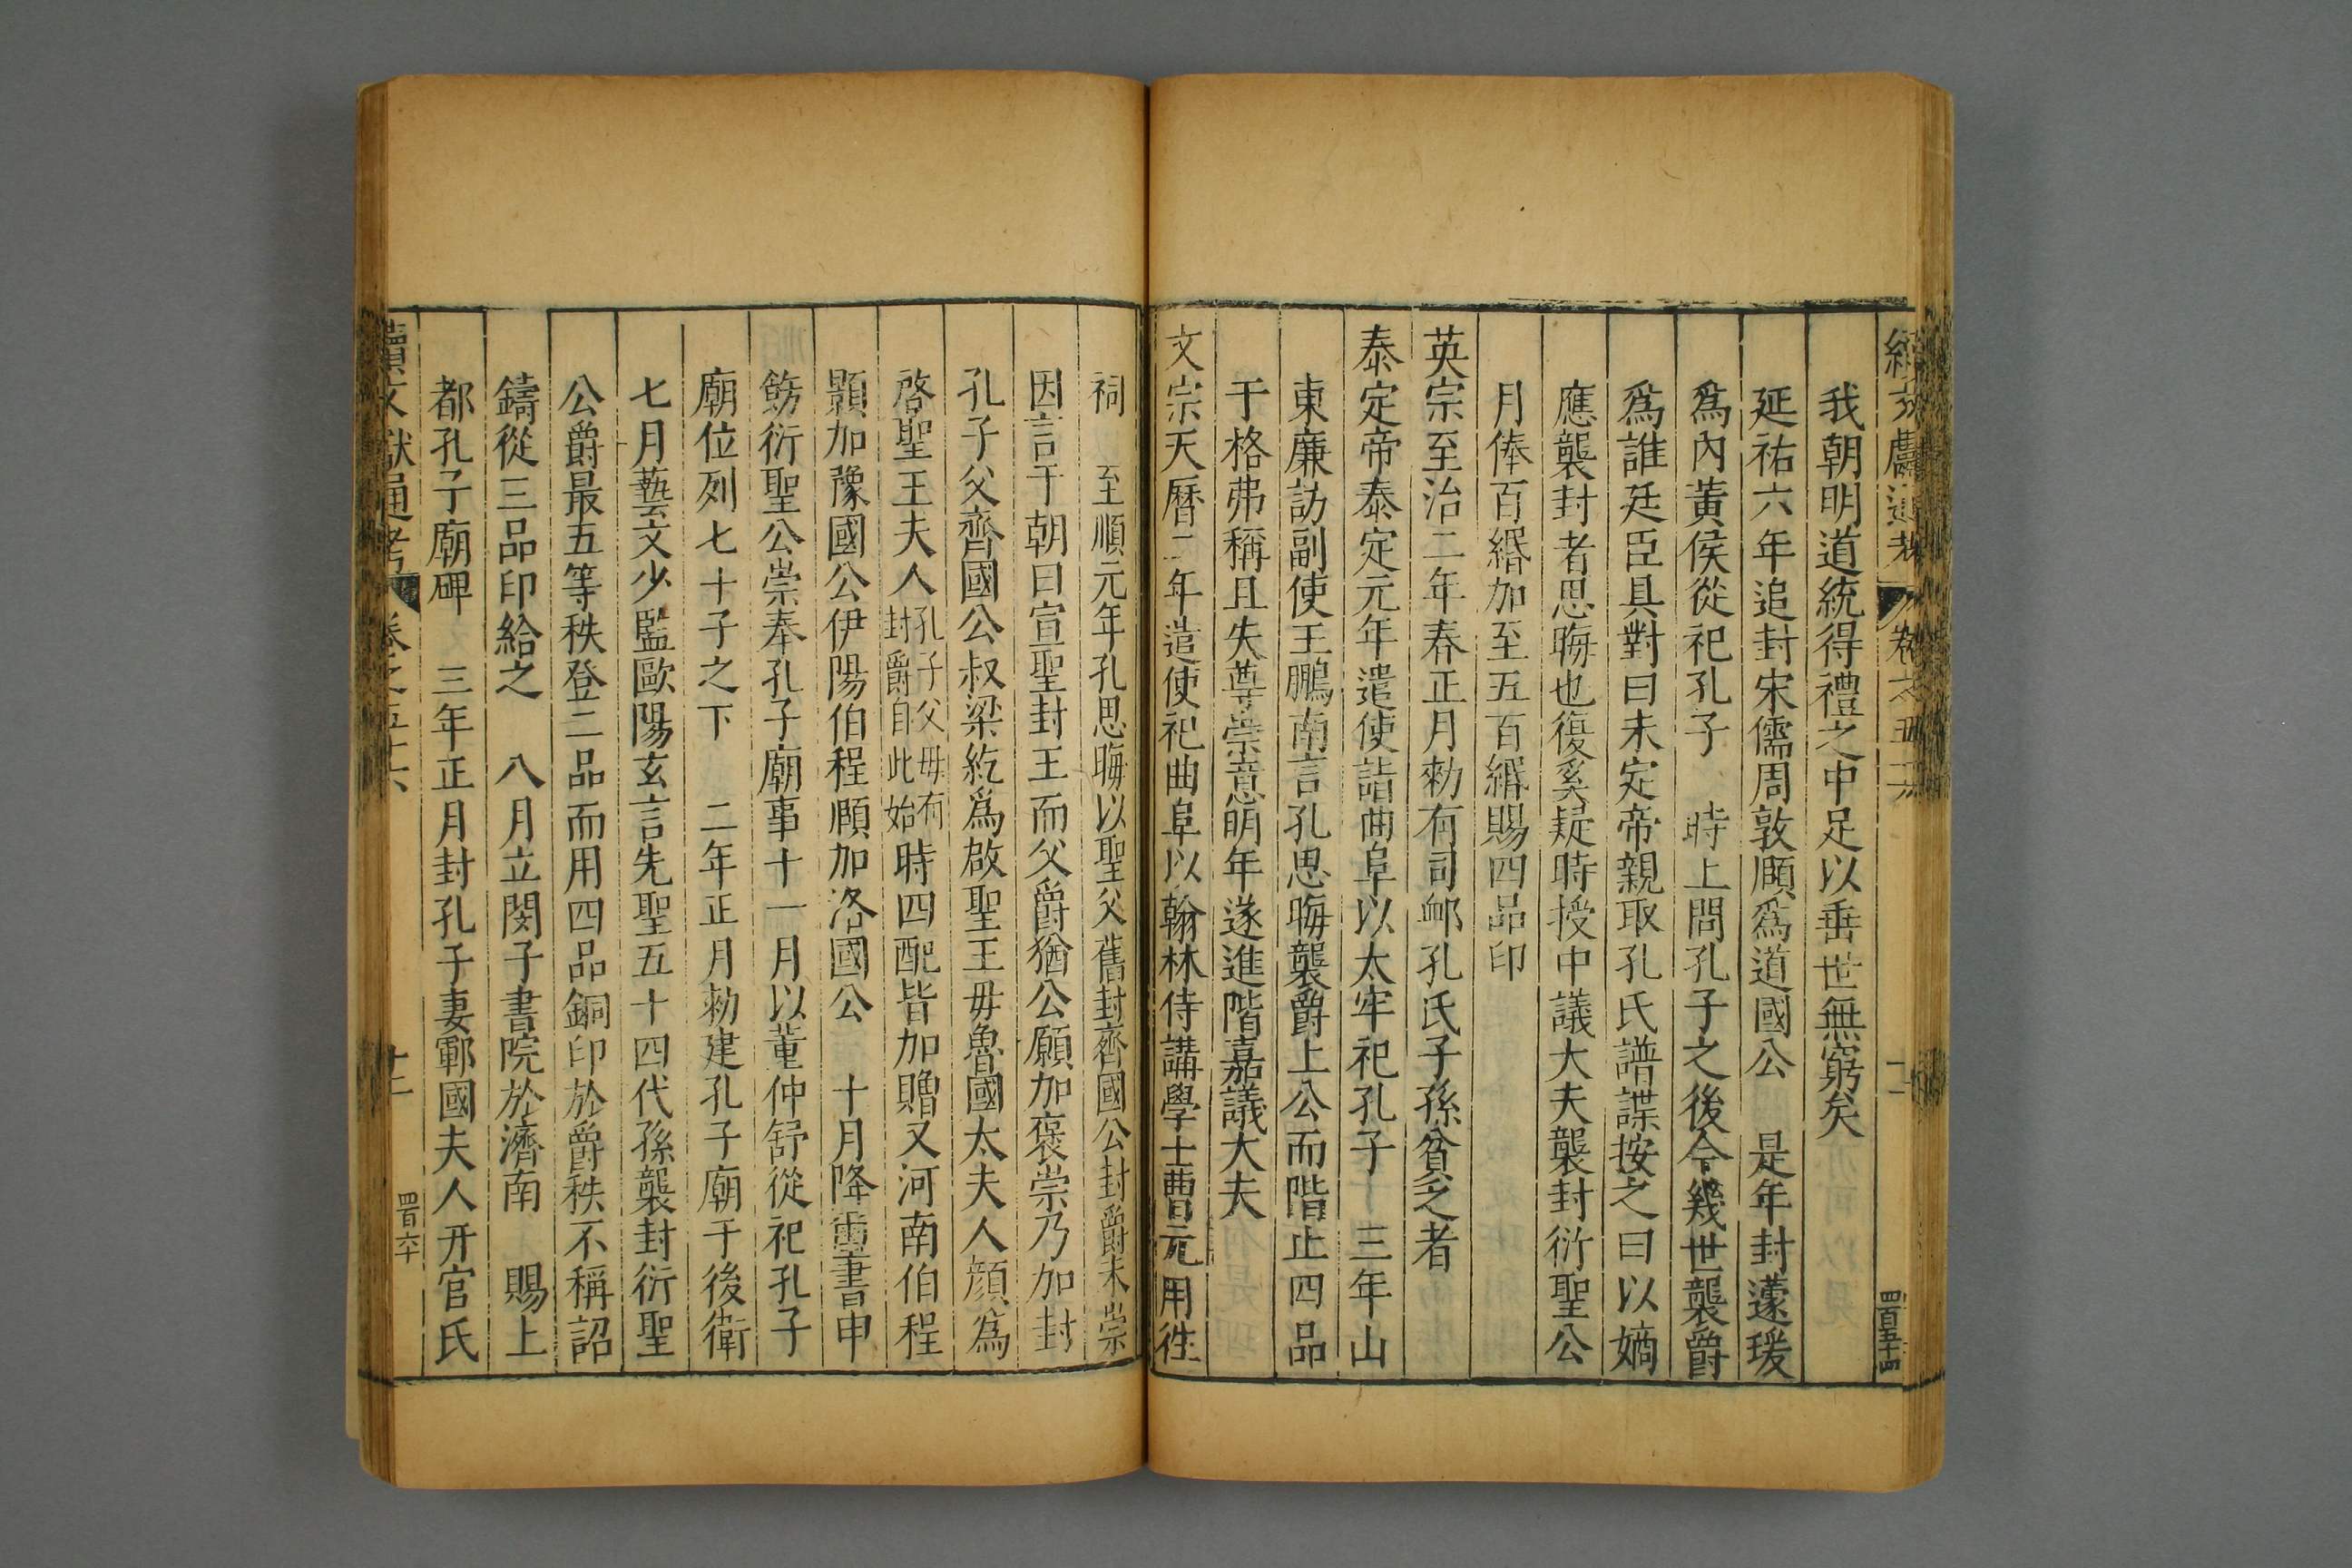 續文獻通考 卷之五十六 十一 四百五十四
我朝明道統得禮之中足以垂世無窮矣
延祐六年追封宋儒周敦頤爲道國公 是年封蘧瑗
爲內黃侯從祀孔子 時上問孔子之後今幾世襲爵
爲誰廷臣具對曰未定帝親取孔氏譜諜按之曰以嫡
應襲封者思晦也復奚疑時授中議大夫襲封衍聖公
月俸百緡加至五百緡賜四品印
英宗至治二年春正月勑有司衈孔氏子孫貧乏者
泰定帝泰定元年遣使詣曲阜以太牢祀孔子 三年山
東廉訪副使王鵬南言孔思晦襲爵上公而階止四品
于格弗稱且失尊崇意明年遂進階嘉議大夫
文宗天曆二年遣使祀曲阜以翰林侍講學士曹元用徃
祠 至順元年孔思晦以聖父舊封齊國公封爵未崇
因言于朝曰宣聖封王而父爵猶公願加褒崇乃加封
孔子父齊國公叔梁紇爲啟聖王母魯國太夫人顔爲
啓聖王夫人孔子父母有封爵自此始時四配皆加贈又河南伯程
顥加豫國公伊陽伯程頤加洛國公 十月降璽書申
飭衍聖公崇奉孔子廟事十一月以董仲舒從祀孔子
廟位列七十子之下 二年正月勑建孔子廟于後衛
七月藝文少監歐陽玄言先聖五十四代孫襲封衍聖
公爵最五等秩登二品而用四品銅印於爵秩不稱詔
鑄從三品印給之 八月立閔子書院於濟南 賜上
都孔子廟碑 三年正月封孔子妻鄆國夫人开官氏
續文獻通考 卷之五十六 十二 四百六十